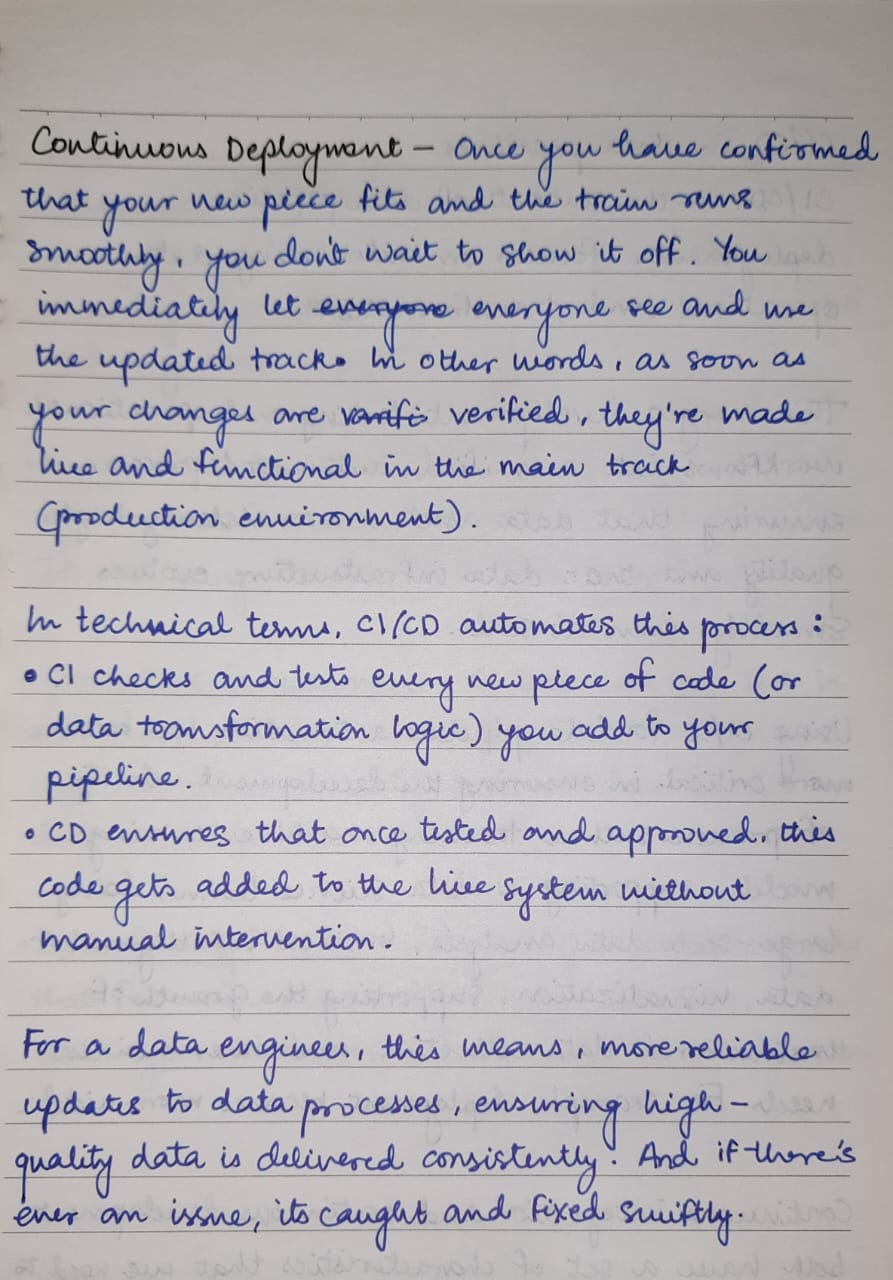 Continuous Deployment - Once you have confirmed
that your new piece fits and the train runs
smoothly, you don't wait to show it off. You
immediately let everyone everyone see and use
the updated track. In other words, as soon as
your changes are varifi verified, they're made
live and functional in the main track
(production environment).
In technical terms, CI/CD automates this process:
• CI checks and tests every new piece of code (or
data transformation logic) you add to your
pipeline.
• CD ensures that once tested and approved, this
code gets added to the live system without
manual intervention.
For a data engineer, this means, more reliable
updates to data processes, ensuring high-
quality data is delivered consistently. And if there's
ever an issue, its caught and fixed swiftly.